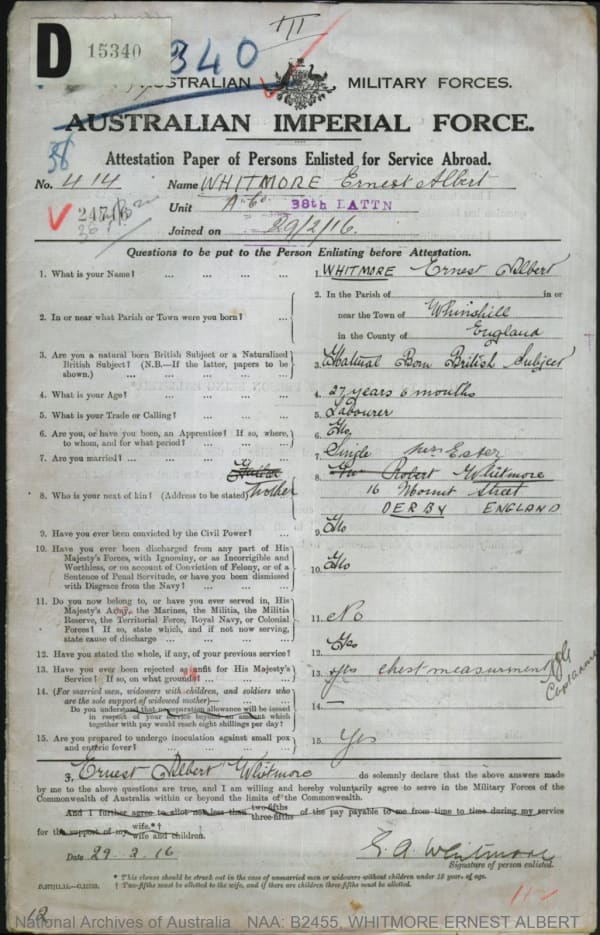 D
15340
340
AUSTRALIAN MILITARY FORCES.
AUSTRALIAN IMPERIAL FORCE.
38
Attestation Paper of Persons Enlisted for Service Abroad.
No. 414 Name WHITMORE Ernest Albert
24716
Unit A Co 38th BATTN
Joined on 29/2/16.
Questions to be put to the Person Enlisting before Attestation.
1. What is your Name? ... ... ... 1. WHITMORE Ernest Albert
2. In or near what Parish or Town were you born? ... 2. In the Parish of in or
near the Town of Whinshill
in the County of England
3. Are you a natural born British Subject or a Naturalized
British Subject? (N.B.—If the latter, papers to be
shown.) ... ... ... ... 3. Natural Born British Subject
4. What is your Age? ... ... ... 4. 27 years 6 months
5. What is your Trade or Calling? ... ... ... 5. Labourer
6. Are you, or have you been, an Apprentice? If so, where,
to whom, and for what period? ... ... ... 6. No
7. Are you married? ... ... ... ... 7. Single
Mrs Ester
8. Who is your next of kin? (Address to be stated) Mother 8. Robert Whitmore
16 Mount Street
DERBY ENGLAND
9. Have you ever been convicted by the Civil Power? ... ... 9. No
10. Have you ever been discharged from any part of His
Majesty's Forces, with Ignominy, or as Incorrigible and
Worthless, or on account of Conviction of Felony, or of a
Sentence of Penal Servitude, or have you been dismissed
with Disgrace from the Navy? ... ... ... 10. No
11. Do you now belong to, or have you ever served in, His
Majesty's Army, the Marines, the Militia, the Militia
Reserve, the Territorial Force, Royal Navy, or Colonial
Forces? If so, state which, and if not now serving,
state cause of discharge ... ... ... 11. No
12. Have you stated the whole, if any, of your previous service? 12. Yes
13. Have you ever been rejected as unfit for His Majesty's
Service? If so, on what grounds? ... ... ... 13. Yes chest measurment
14. (For married men, widowers with children, and soldiers who
are the sole support of widowed mother)—
Do you understand that no separation allowance will be issued
in respect of your service beyond an amount which
together with pay would reach eight shillings per day? 14. —
15. Are you prepared to undergo inoculation against small pox
and enteric fever? ... ... ... ... 15. Yes
I, Ernest Albert Whitmore do solemnly declare that the above answers made
by me to the above questions are true, and I am willing and hereby voluntarily agree to serve in the Military Forces of the
Commonwealth of Australia within or beyond the limits of the Commonwealth.
And I further agree to allot not less than two-fifths three-fifths of the pay payable to me from time to time during my service
for the support of my wife.*† wife and children.
Date 29.2.16 E. A. Whitmore
Signature of person enlisted.
* This clause should be struck out in the case of unmarried men or widowers without children under 18 years of age.
† Two-fifths must be allotted to the wife, and if there are children three-fifths must be allotted.
12
National Archives of Australia NAA: B2455, WHITMORE ERNEST ALBERT